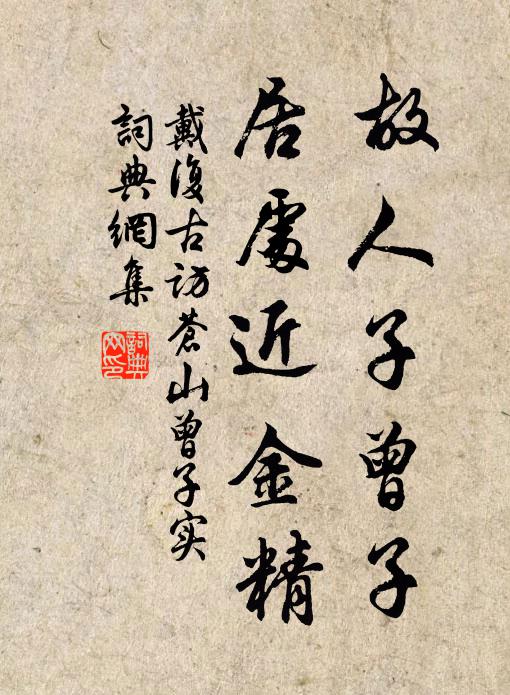 故人子曾子
居處近金精
戴復古访蒼山曾子实
詞典網集
詞典網印